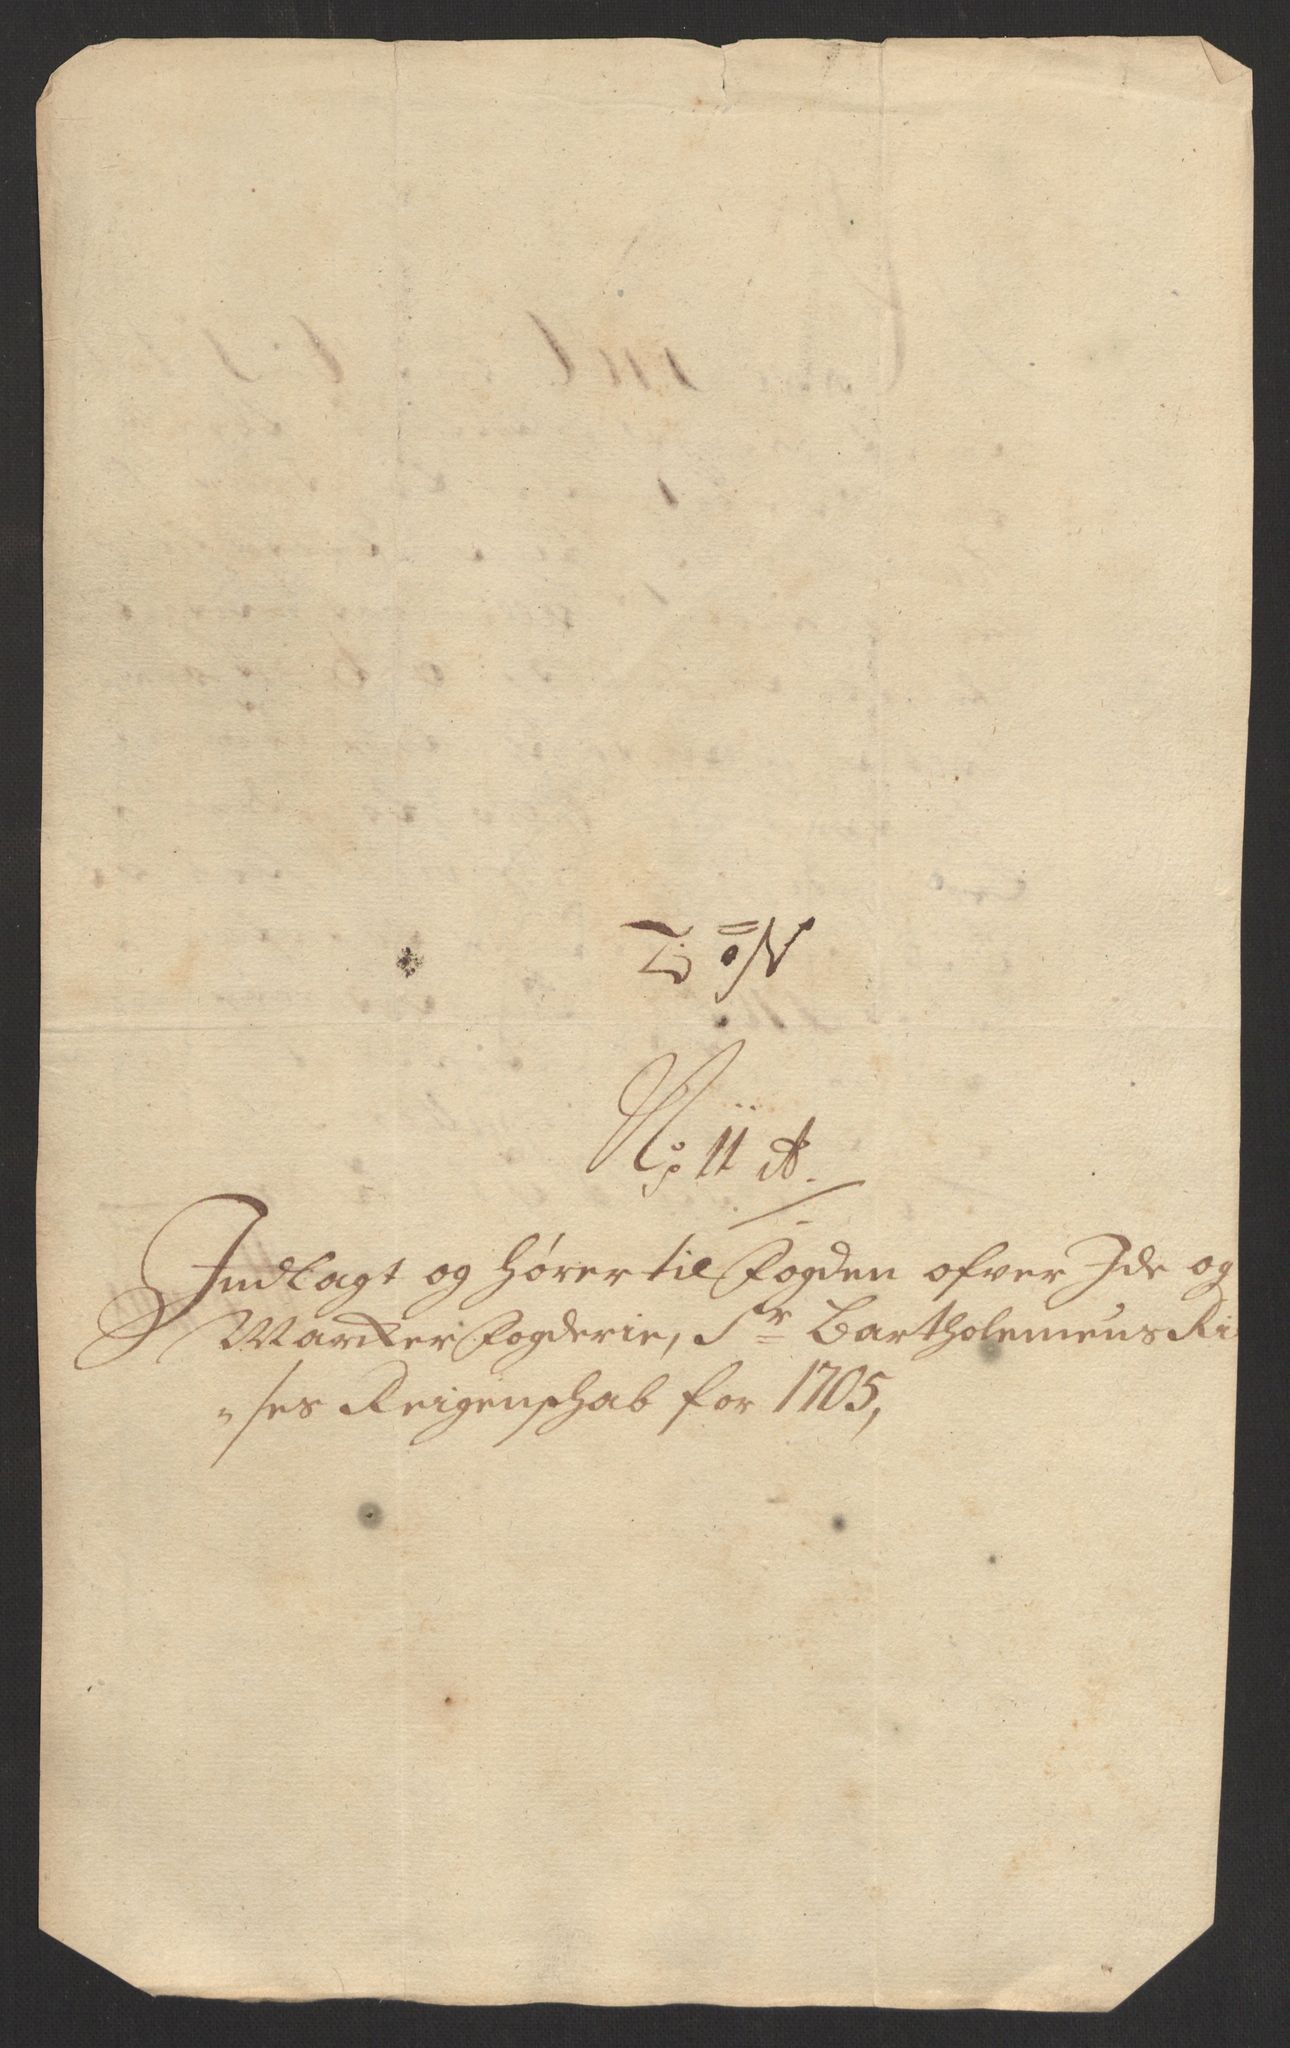 No 7
No: 11 A.
Indlagt og hører til Fogden ofver Ide og
Marker Fogderie, Sr Bartholemeus Ri
"ses Reigenschab for 1705,